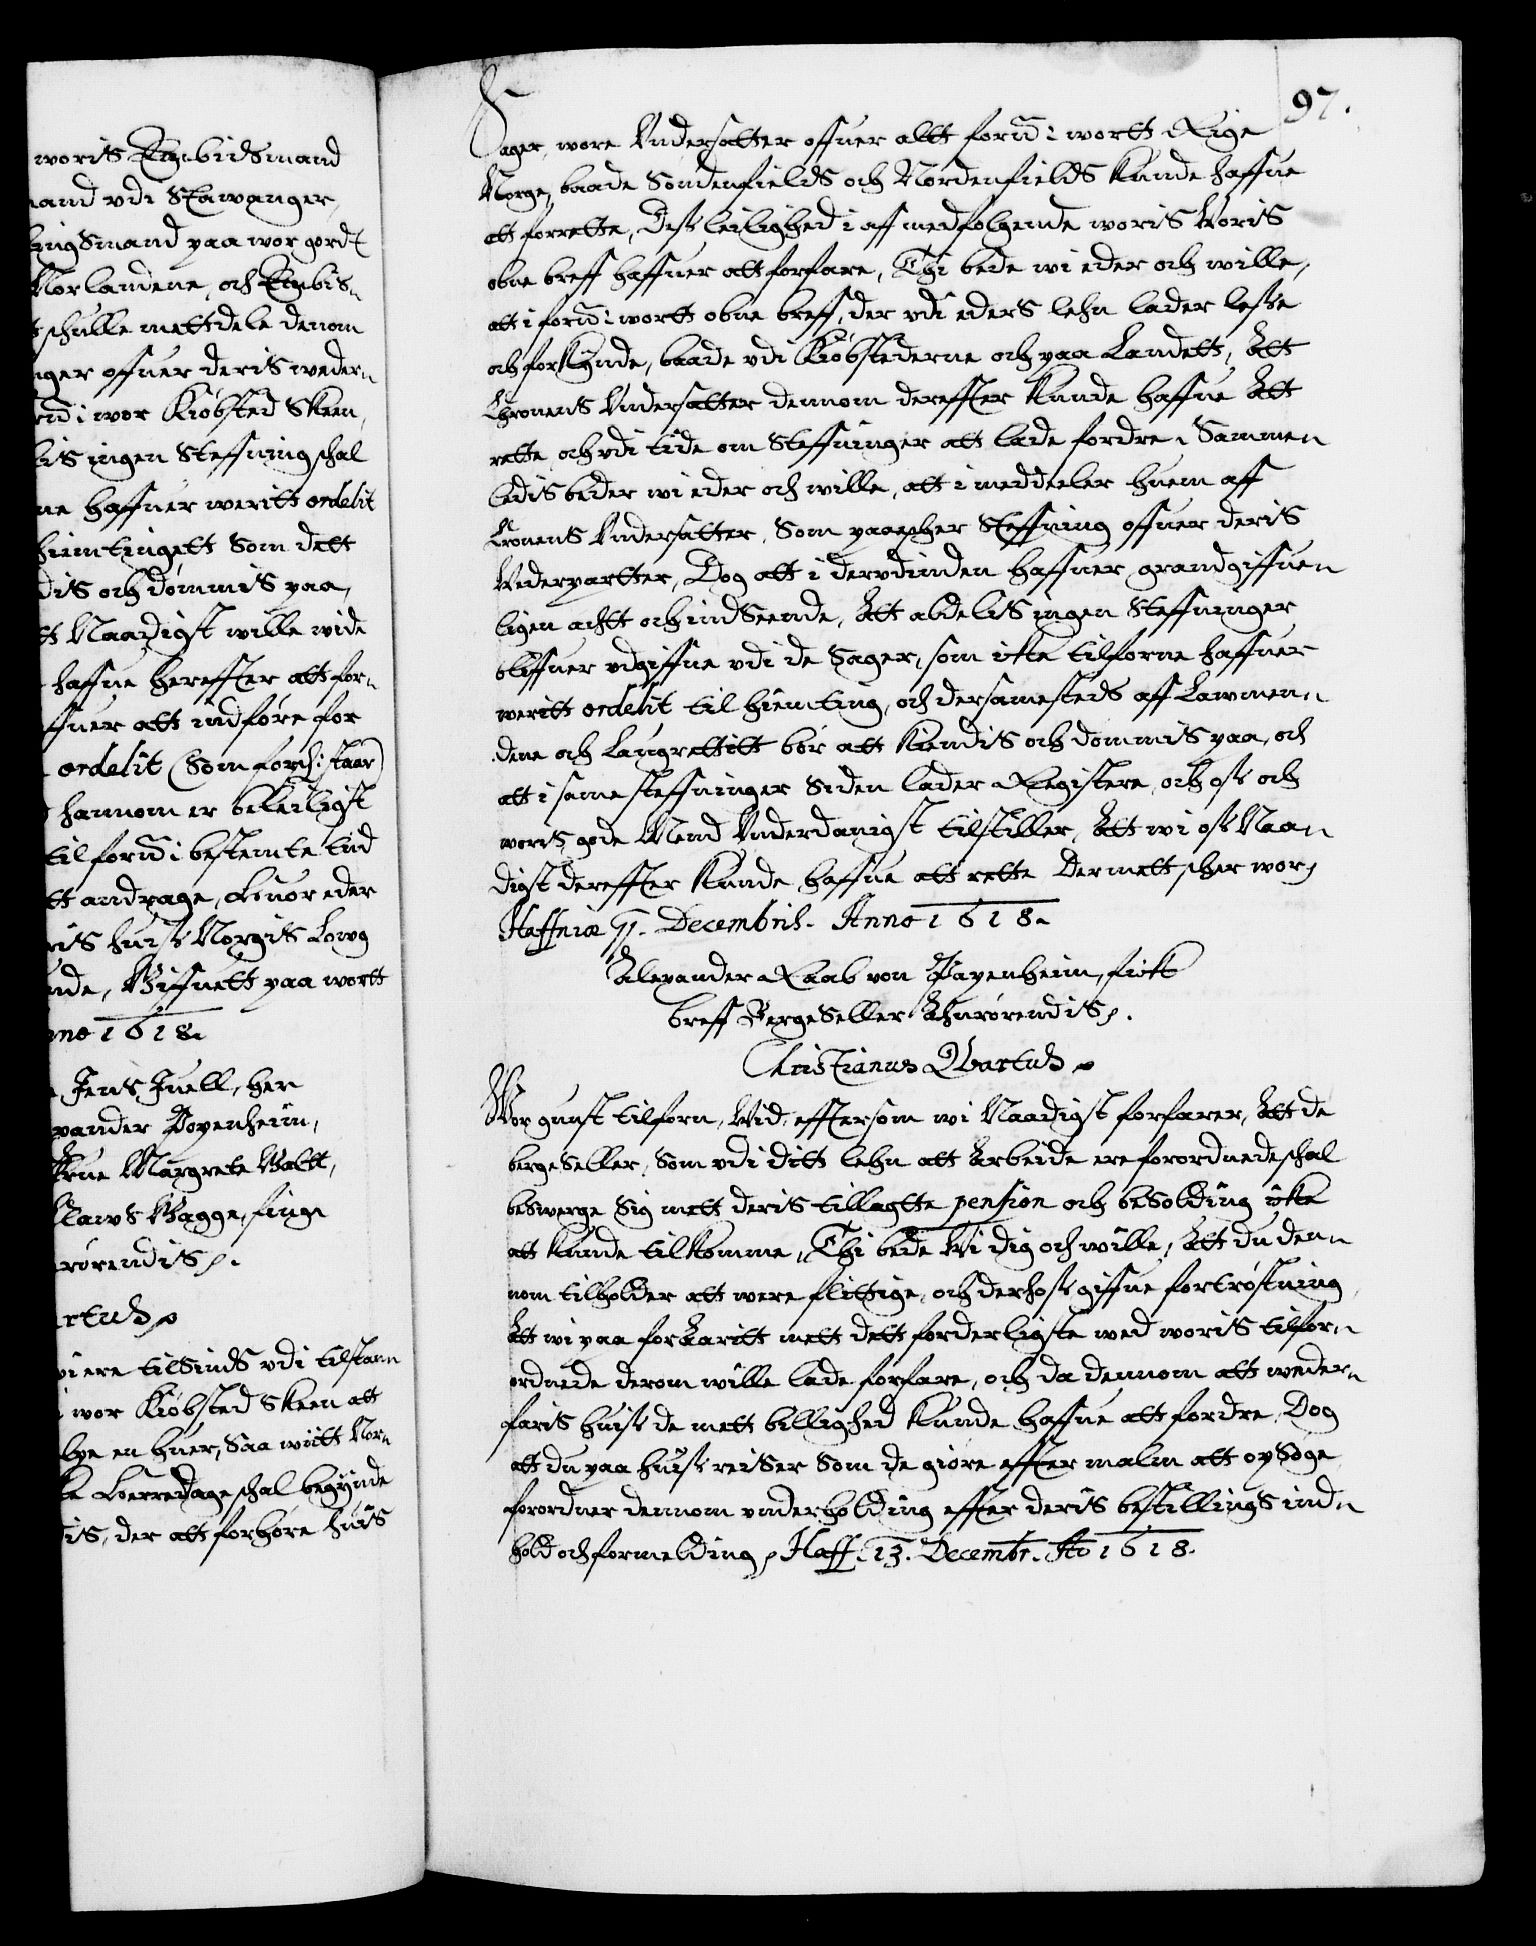 woris Embidsmand
mand vdi Stawanger,
lingsmand paa wor gord
Norlandene, och Embis¬
schulle mettdele denom
nger offuer deris weder¬
i wor Kiøbsted Skeen,
lis ingen Steffning schal
ne haffuer weritt ordelit
hiemtingett Som dett
dis och dømmis paa,
tt Naadigst wille wide
haffue hereffter att for¬
ffuer att indføre for
ordelit (Som forsch: staar)
hannom er beleiligst
til forn: bestemte tid
tt andrage, huor eder
ris huis Norgis Lowg
nde, Giffuett paa wortt
nno 1618.
Jens Juell, her
xander Papenheim,
frue Margrete
Claws Gagge, finge
rørendis.
rtus
wi ere tilsinds vdi tilstan
i wor Kiøbsted Skeen att
lge en huer, Saa witt Nor¬
ke herredage schal begynde
is, der att forhøre huis
97.
Sager, wore Vndersatter offuer allt ford: i wortt Rige
Norge, baade Søndenfields och Nordenfields kunde haffue
att forrette, Dess leilighed i aff medfølgende woris Woris
obne breff haffuer att forfare, Thi bede wi eder och wille,
att i ford: wortt obne breff, der vdi eders lehn lader lesse
och forkynde, baade vdi Kiøbstederne och paa Landett, Att
Chronens Vndersatter dennom dereffter kunde haffue Att
rette och vdi tide om Steffninger att lade fordre, Sammen¬
ledis beder wi eder och wille, att i meddeeler huem aff
Cronens Vndersatter, Som paaesher Steffning offuer deris
Wederpartter, Dog att i dervdinden haffuer grandgiffuen¬
ligen achtt och indseende, Att aldelis ingen Steffninger
bliffuer vdgiffne vdi de Sager, som icke tilforne haffuer
weritt ordelit til hiemting, och dersamesteds aff Lawmen¬
dene och Laugrettitt bør att kiendis och dommis paa, och
att i same steffninger siden lader Registere, och oss och
woris gode Mend Vnderdanigst tilstiller, Att wi oss Naa¬
digst dereffter kunde haffue att rette Dermett scher wor
Haffniæ 11. Decembris. Anno 1618.
Alexander Raab von Papenheim, fick
breff BergeSeller Ahnrørendis.
Christianus Quartus
Wor gunst tilforn, Wid, efftersom wi Naadigst forfarer, Att de
bergeSeller, Som vdi ditt lehn att Arbeide ere forordnede schal
besverge Sig mett deris tillagtte pension och besolding icke
att kunde tilkomme, Thi bede Wi dig och wille, Att du den¬
nom tilholder att were flittige, och derhoss giffue fortrøstning
Att wi paa forAaritt mett dett forderligste wed woris tilfor¬
ordnede derom wille lade forfare, och da dennom att weder¬
faris huis de mett billighed kunde haffue att fordre, Dog
att du paa huis reiser Som de giøre effter malm att opsøge
forordner dennom vnderholding effter deris bestillings ind¬
hold och formelding, Haff. 13. Decembr. Ao 1618.